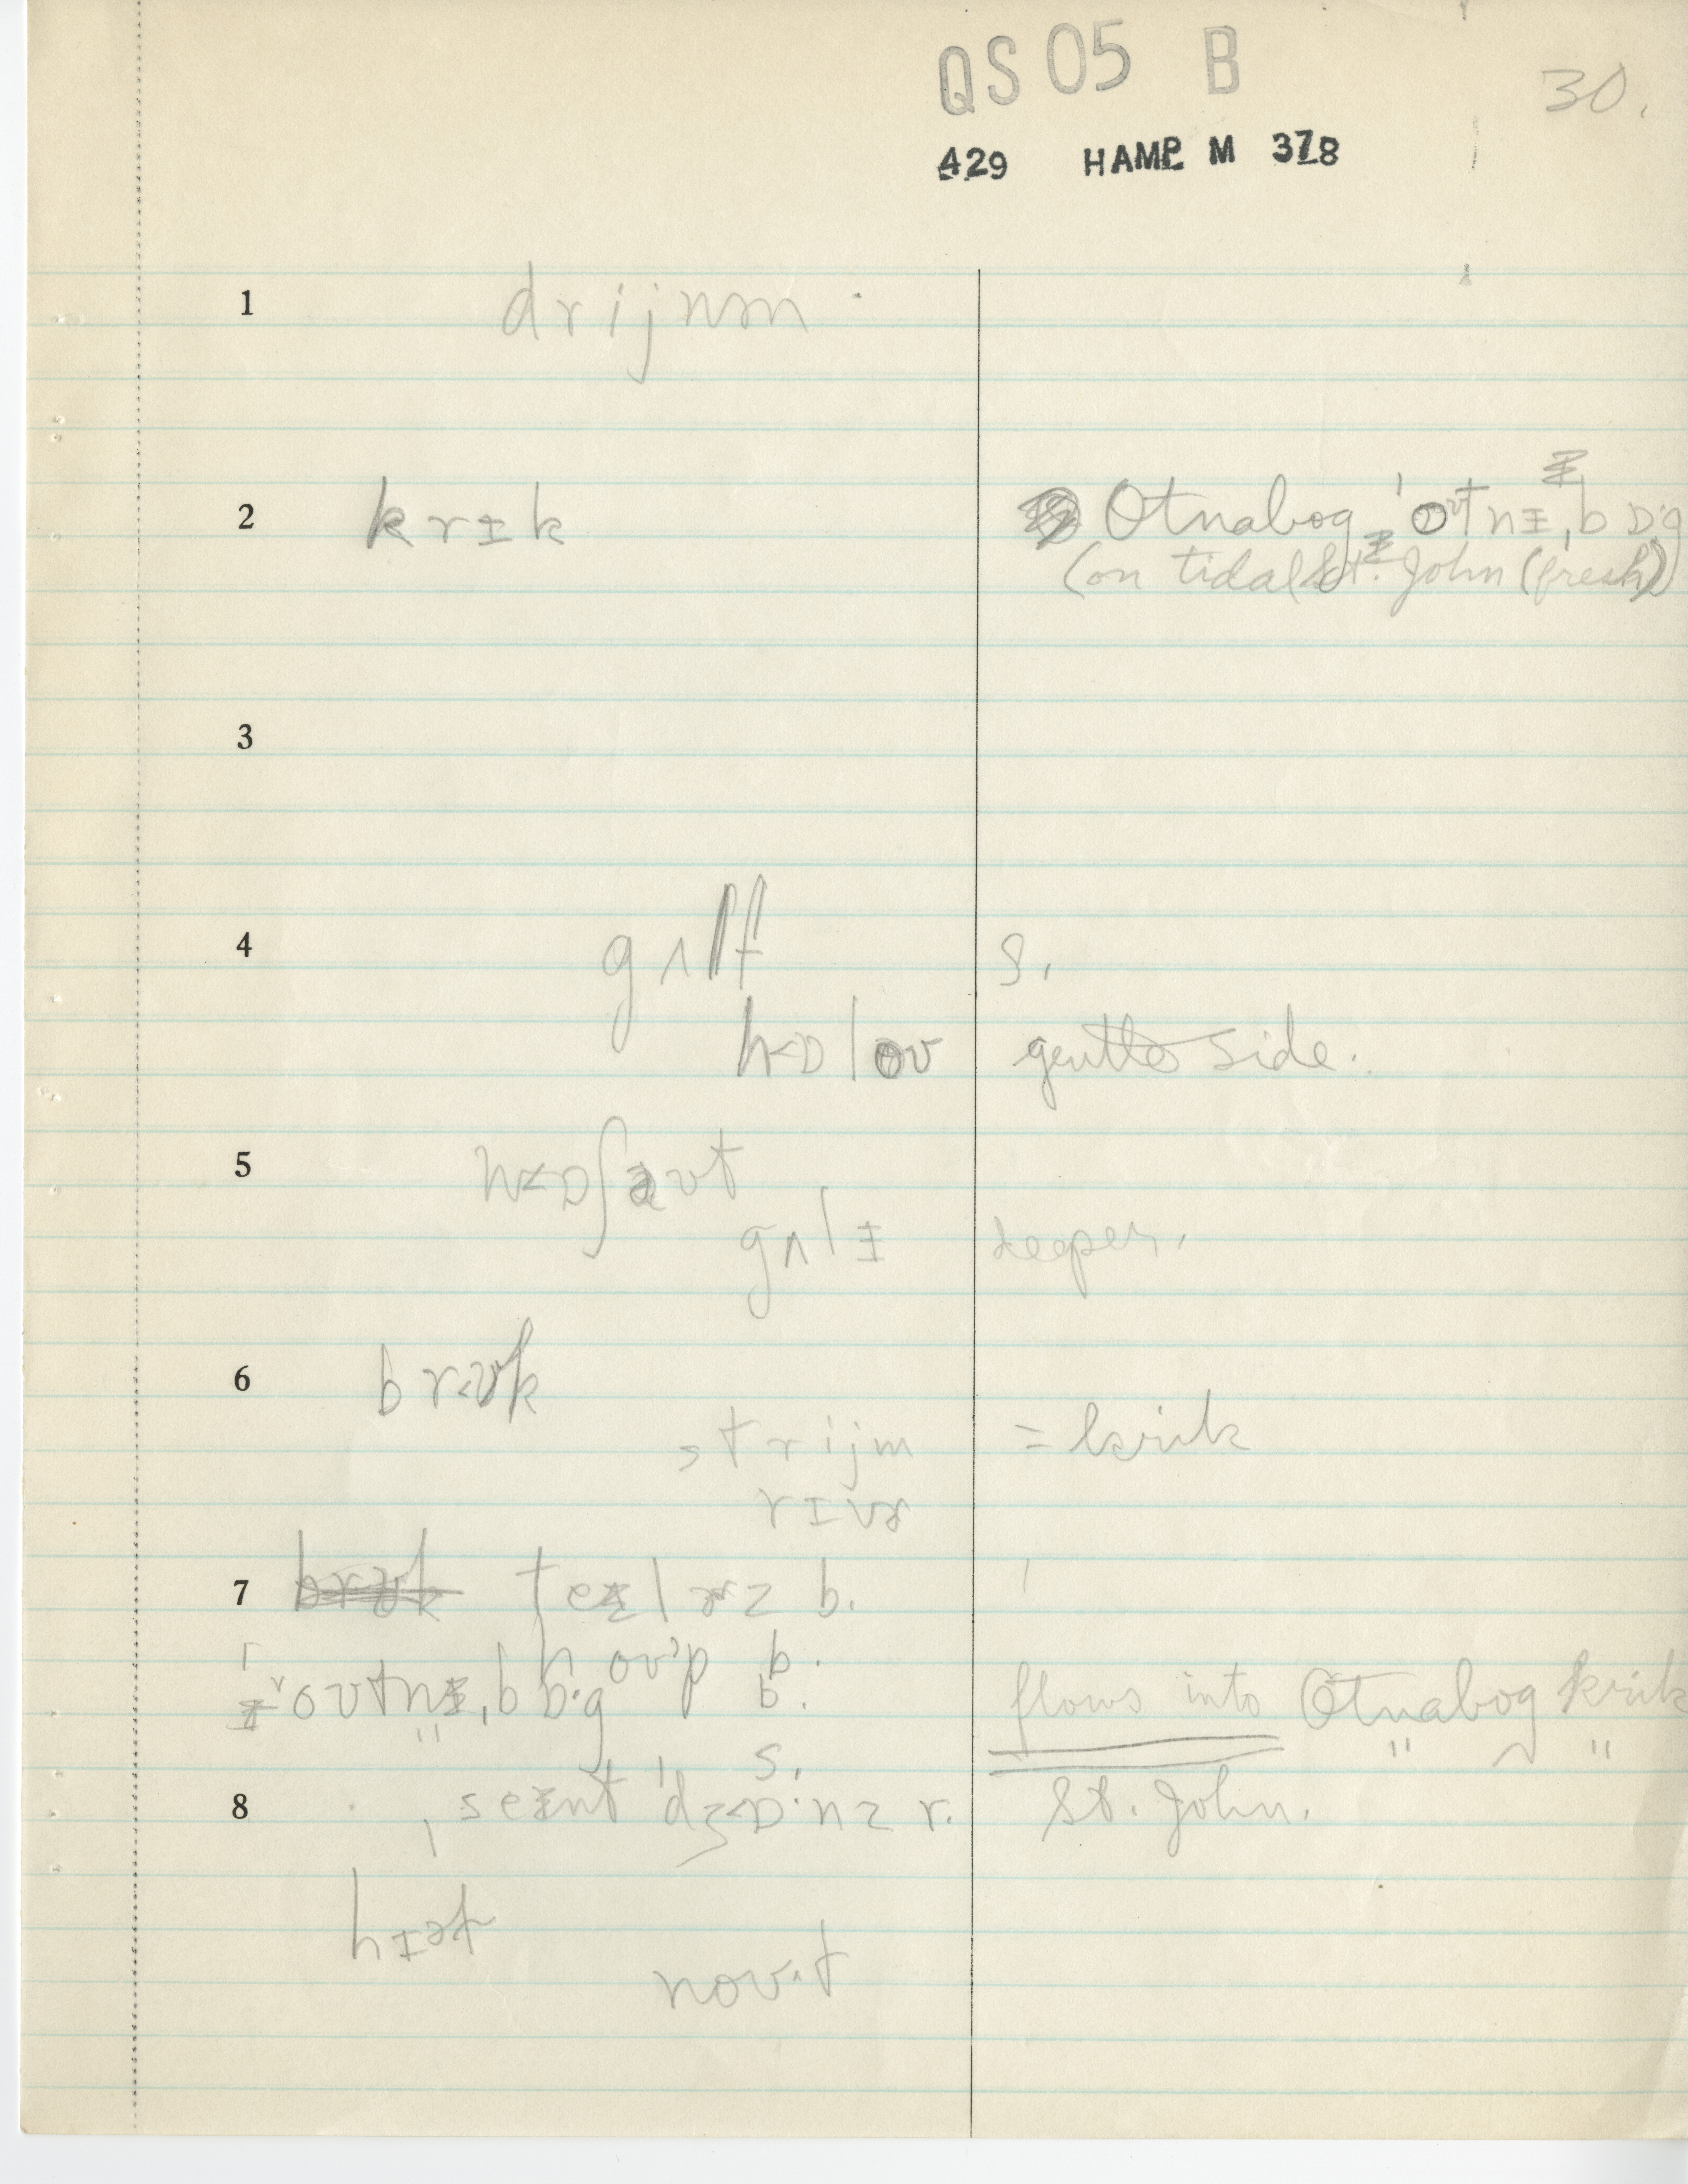 QS 05 B
30.
429 HAMP M 378
1 drijnəm
2 krɪk Otnabog ˈoʊtnɪˌbɒ·g
(on tidal St. John (fresh))
3
4 gʌlf S.
h<ɒloʊ gentle side.
5 w<ɒʃaʊt
gʌlɪ deeper.
6 br<ʊk
strijm = krik
rɪvɚ
7 teɪlɚz b.
hoʊp b.
ˈoʊtnɪˌbɒ·g b. flows into Otnabog krik
S.
8 ˌseɪnt ˈdʒ<ɒ·nz r. St. John.
hɪət
noʊ·t